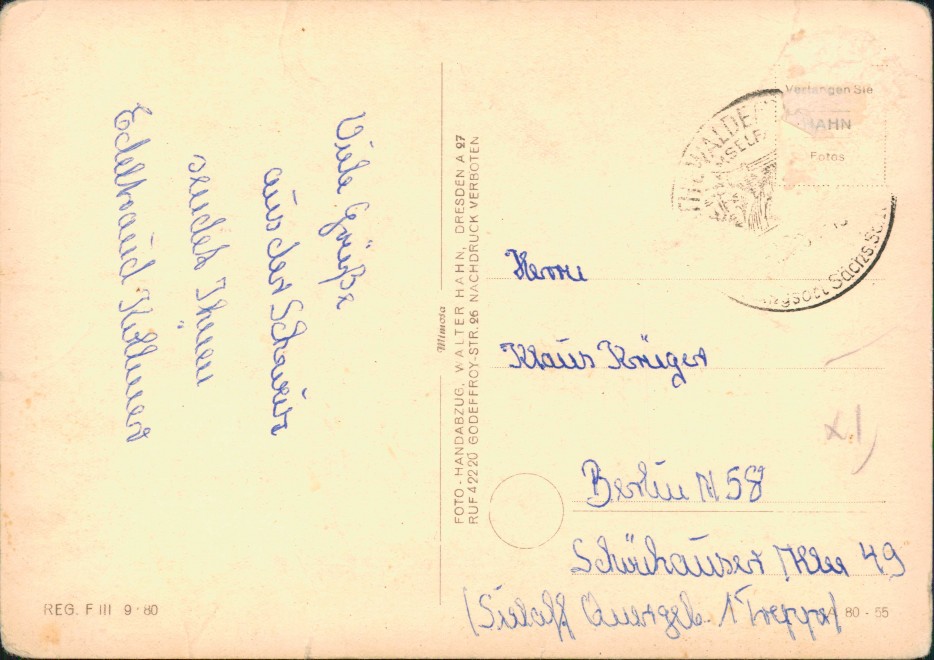 Viele Grüße
aus der Schweiz
sendet Ihnen
Edeltraud Kellner
FOTO-HANDABZUG, WALTER HAHN, DRESDEN A 27
RUF 42220 GODEFFROY-STR. 26 NACHDRUCK VERBOTEN
Mimosa
Verlangen Sie
HAHN
Fotos
AMSELFA
Sächs.
Herrn
Klaus Krüger
Berlin N 58
Schönhauser Allee 49
(Sielaff Quergeb. 1 Treppe)
REG. F III 9·80
A 80 - 55